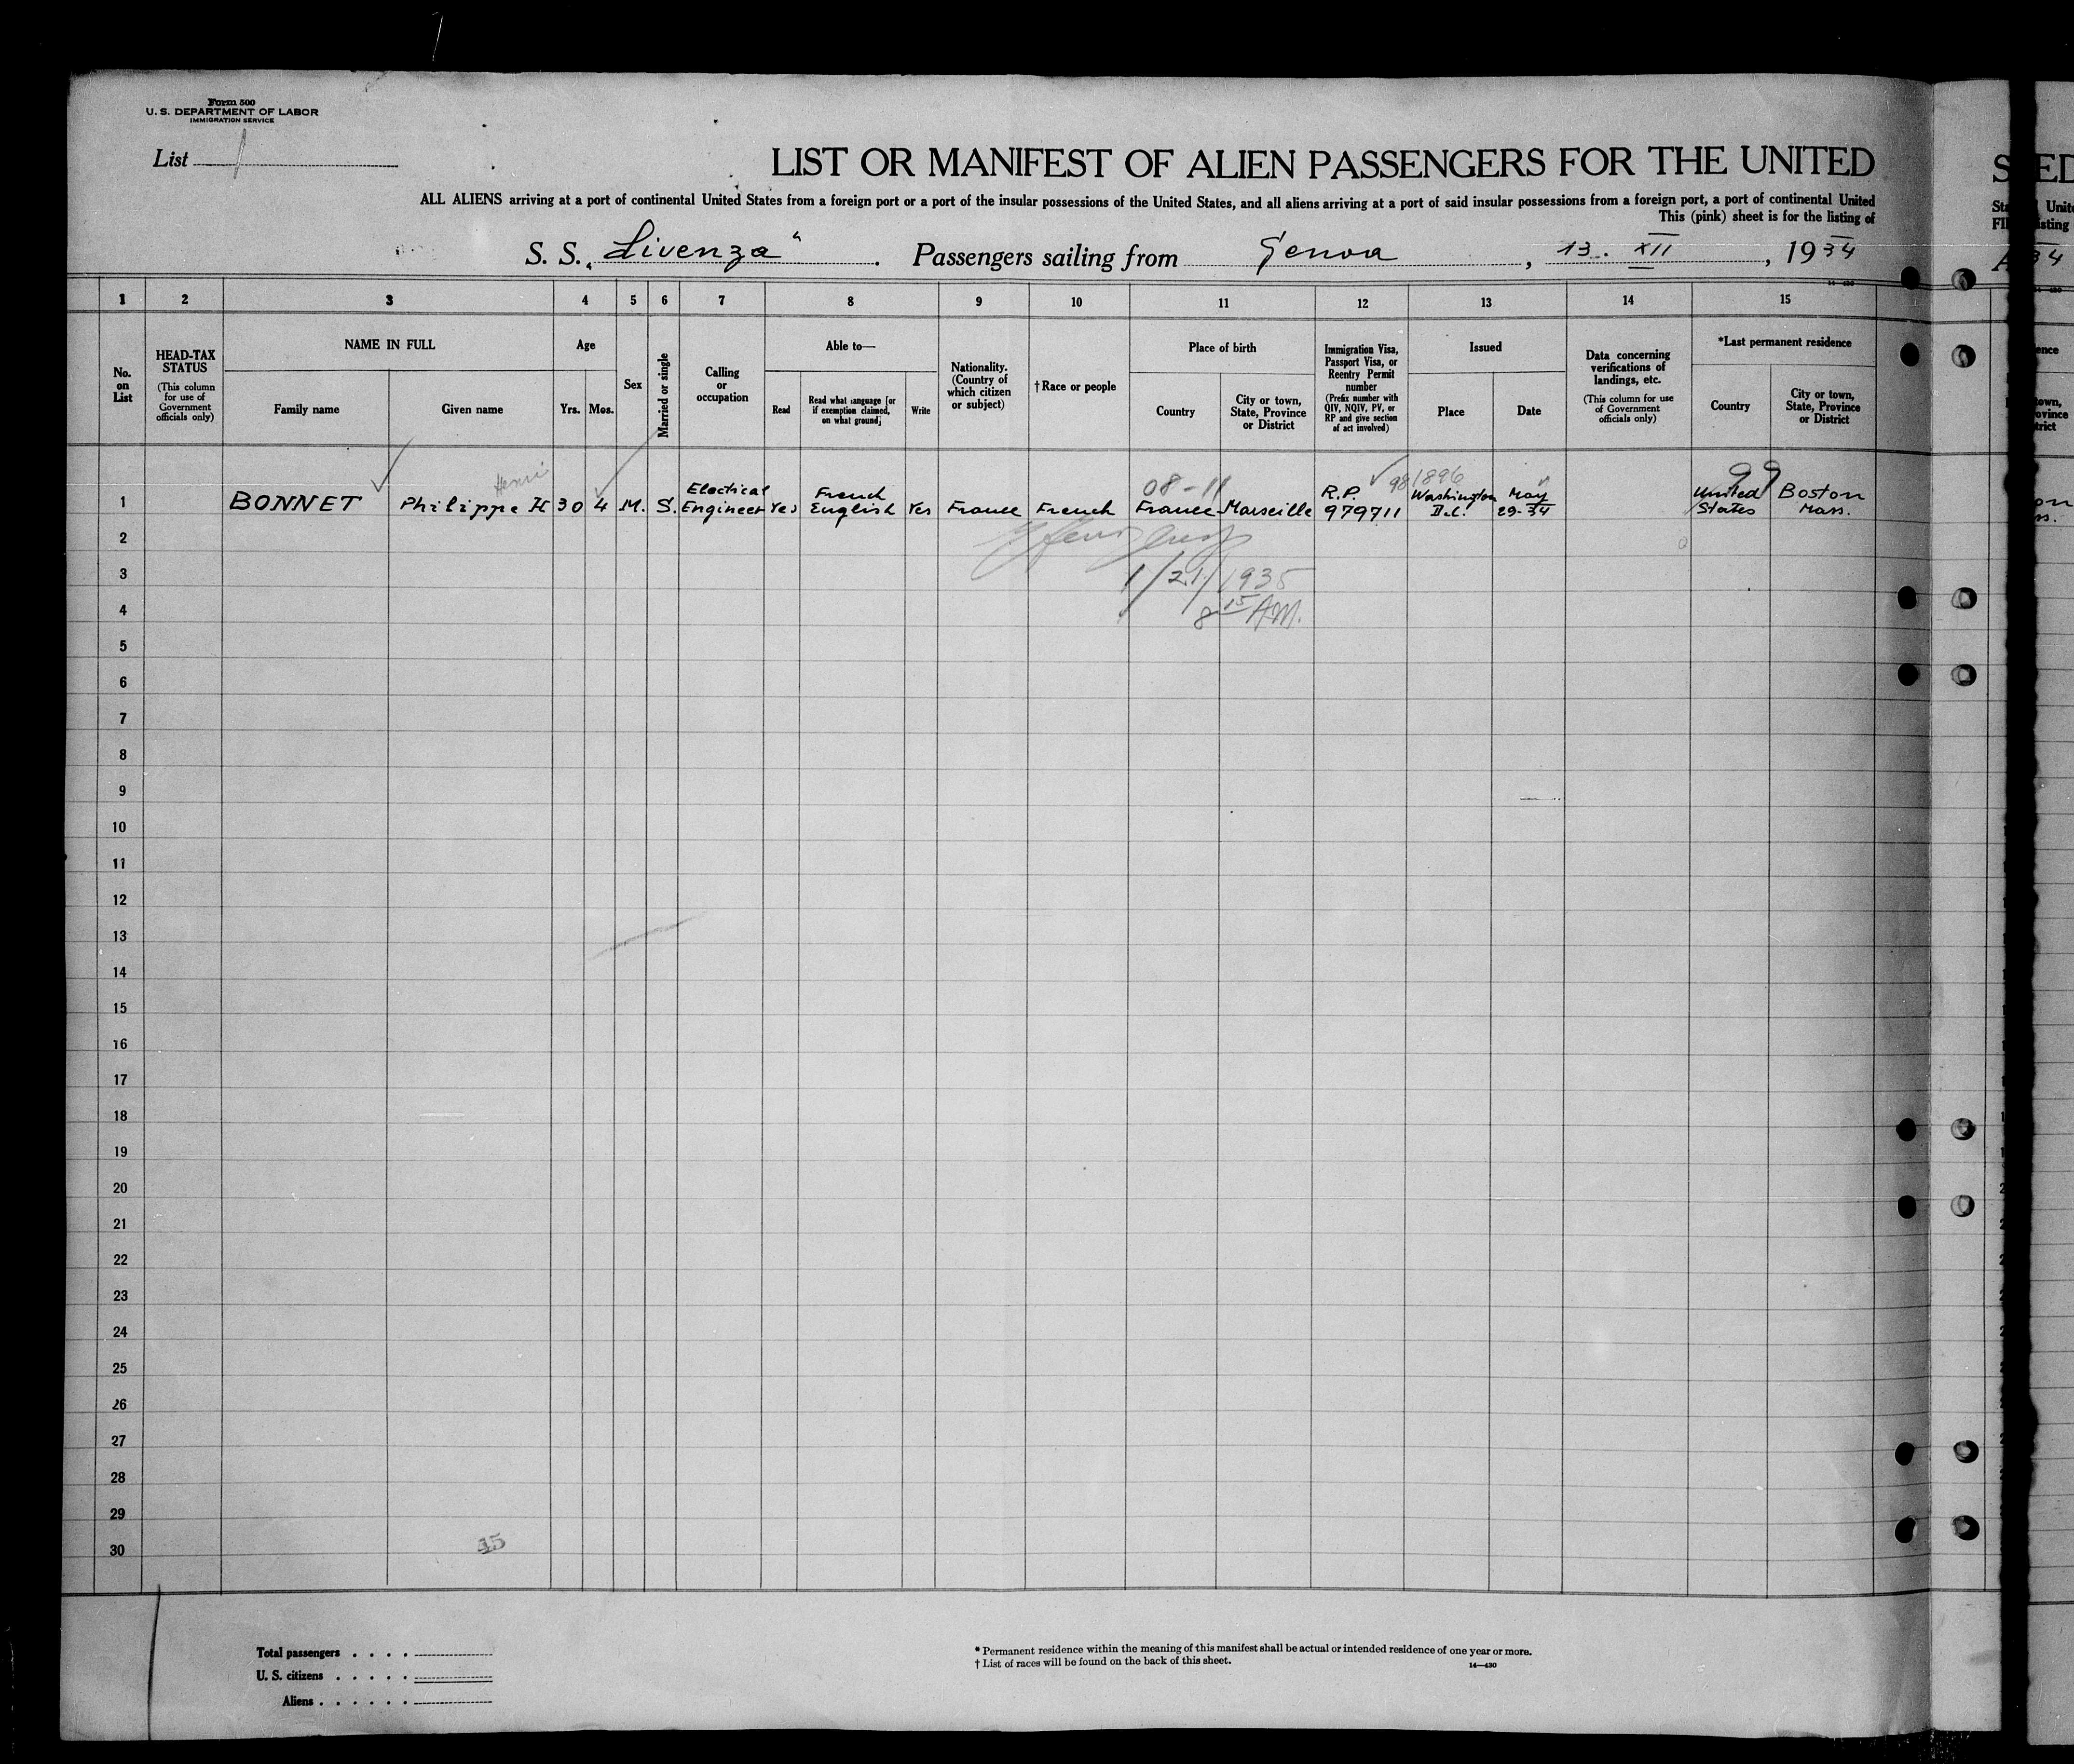 Form 500
U. S. DEPARTMENT OF LABOR
IMMIGRATION SERVICE
List 1
LIST OR MANIFEST OF ALIEN PASSENGERS FOR THE UNITED
ALL ALIENS arriving at a port of continental United States from a foreign port or a port of the insular possessions of the United States, and all aliens arriving at a port of said insular possessions from a foreign port, a port of continental United
This (pink) sheet is for the listing of
S. S. „Livenza“. Passengers sailing from Genova, 13. XII, 1934
1 2 3 4 5 6 7 8 9 10 11 12 13 14 15
No. on List
HEAD-TAX STATUS
(This column for use of Government officials only)
NAME IN FULL
Family name
Given name
Age
Yrs.
Mos.
Sex
Married or single
Calling or occupation
Able to—
Read
Read what language [or if exemption claimed, on what ground]
Write
Nationality. (Country of which citizen or subject)
†Race or people
Place of birth
Country
City or town, State, Province or District
Immigration Visa, Passport Visa, or Reentry Permit number
(Prefix number with QIV, NQIV, PV, or RP and give section of act involved)
Issued
Place
Date
Data concerning verifications of landings, etc.
(This column for use of Government officials only)
*Last permanent residence
Country
City or town, State, Province or District
Henri
08-11
981896
99
1 BONNET Philippe H 30 4 M. S. Electical Engineer Yes French English Yes France French France Marseille R.P. 979711 Washington D.C. May 29-34 United States Boston Mass.
2
3
1/21/1935
4
8 15 AM.
5
6
7
8
9
10
11
12
13
14
15
16
17
18
19
20
21
22
23
24
25
26
27
28
29
30
45
Total passengers
U. S. citizens
Aliens
* Permanent residence within the meaning of this manifest shall be actual or intended residence of one year or more.
† List of races will be found on the back of this sheet.
14—430